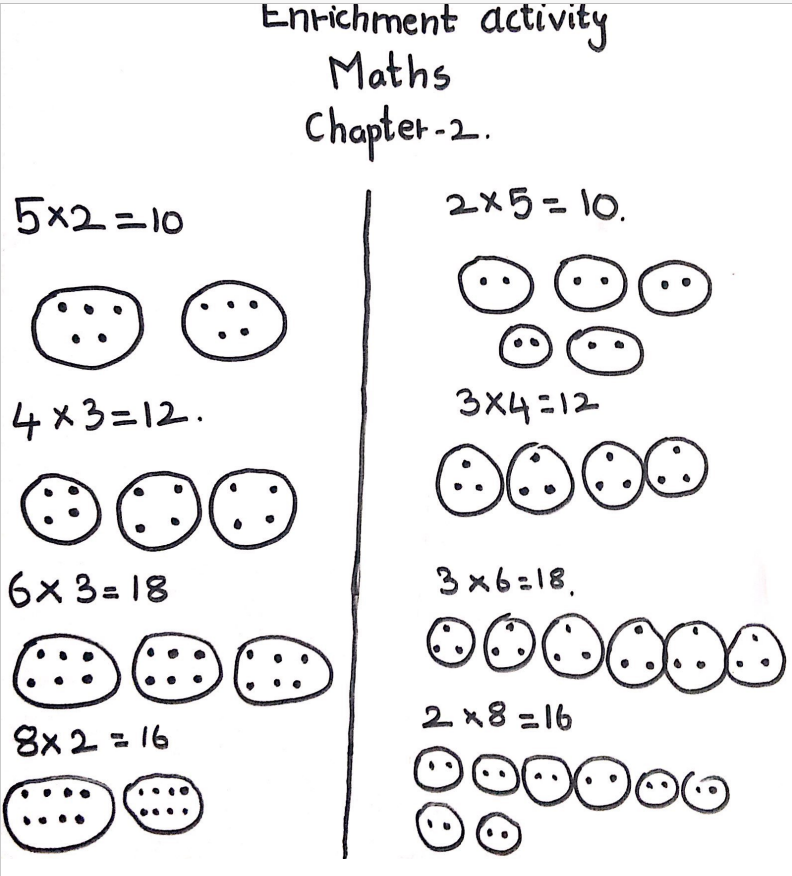 Enrichment activity
Maths
Chapter-2.
5×2=10
4×3=12.
6×3=18
8×2=16
2×5=10.
3×4=12
3×6=18.
2×8=16